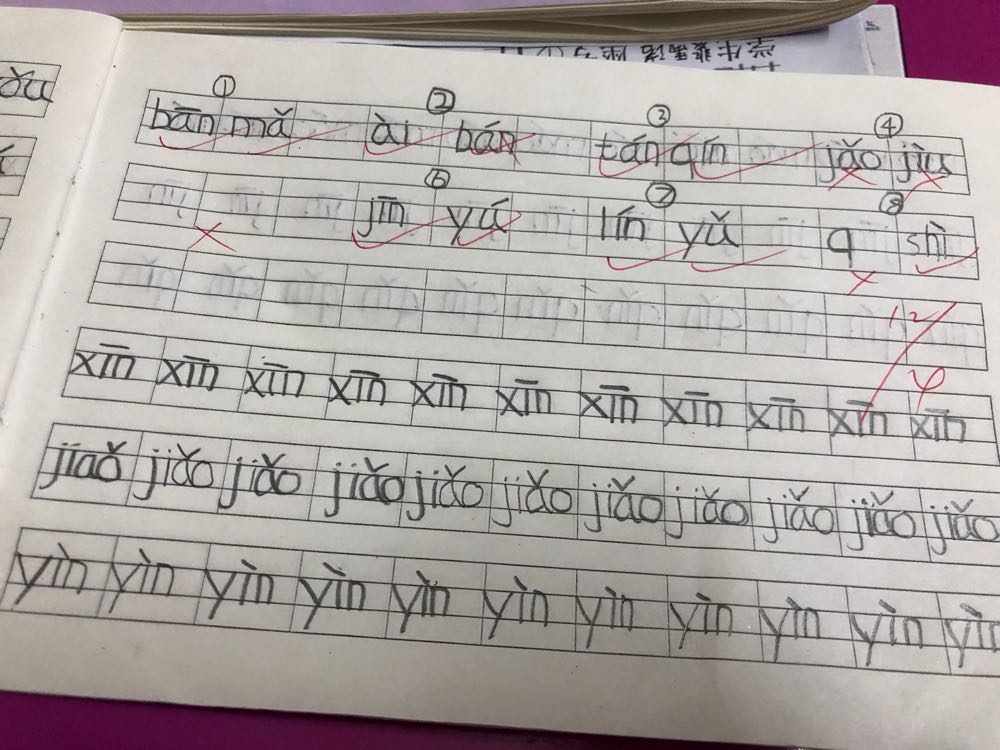 ① ② ③ ④
bān mǎ ài bán tán qín jǎo jùu
⑥ ⑦ ⑧
jīn yú lín yǔ q shì
12
xīn xīn xīn xīn xīn xīn xīn xīn xīn xīn xīn
jiaǒ jiǎo jiǎo jiǎo jiǎo jiǎo jiǎo jiǎo jiǎo jiǎo jiǎo
yìn yìn yìn yìn yìn yìn yìn yìn yìn yìn yìn